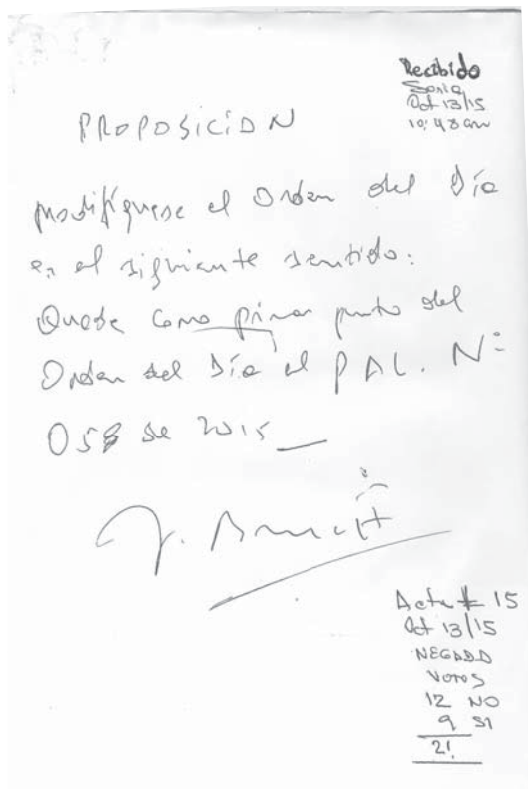 Recibido
Sonia
Oct 13/15
10:48 am
PROPOSICION
Modifíquese el Orden del Día
en el siguiente sentido:
Quede como primer punto del
Orden del Día el PAL. Nº
058 de 2015
Acta # 15
Oct 13/15
NEGADO
VOTOS
12 NO
9 SI
21